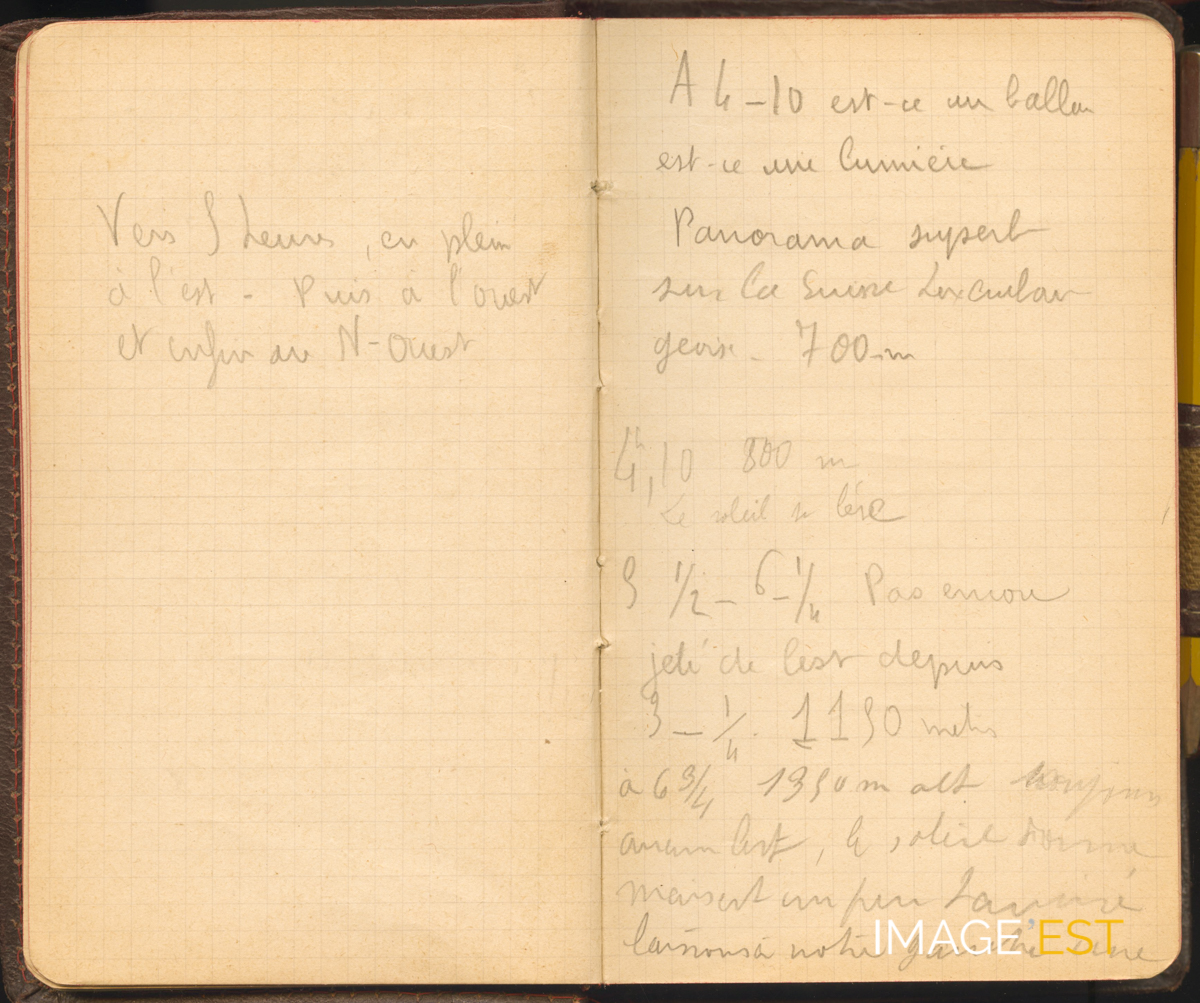 Vers 5 heures, en plein
à l'est - Puis à l'ouest
et enfin au N-Ouest
A 4-10 est-ce un ballon
est-ce une lumière
Panorama superb
sur la Suisse Luxembour
geoise - 700 m
4h,10 800 m
Le soleil se lève
5 1/2 - 6-1/4 Pas encore
jeté de lest depuis
3 - 1/4. 1150 mètres
à 6 3/4 1350 m alt toujours
aucun lest, le soleil donne
mais est un peu tamisé
laissons à notre gauche une
IMAGE'EST